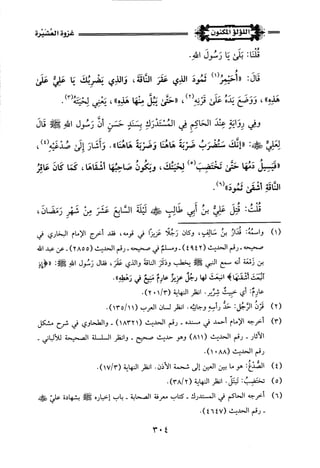 اللؤلؤ المكنون
غزوة العشيرة
قُلْنَا: بَلَىٰ يَا رَسُولَ اللهِ.
قَالَ: «أُحَيْمِرُ(١) ثَمُودَ الذِي عَقَرَ النَّاقَةَ، وَالذِي يَضْرِبُكَ يَا عَلِيُّ عَلَىٰ
هَذِهِ»، وَوَضَعَ يَدَهُ عَلَىٰ قَرْنِهِ(٢)، «حَتَّىٰ يَبُلَّ مِنْهَا هَذِهِ»، يَعْنِي لِحْيَتَهُ(٣).
وَفِي رِوَايَةٍ عِنْدَ الحَاكِمِ فِي المُسْتَدْرَكِ بِسَنَدٍ حَسَنٍ أَنَّ رَسُولَ اللهِ ﷺ قَالَ
لِعَلِيٍّ: «إِنَّكَ سَتُضْرَبُ ضَرْبَةً هَاهُنَا وَضَرْبَةً هَاهُنَا»، وَأَشَارَ إِلَىٰ صُدْغَيْهِ(٤)،
«فَيَسِيلُ دَمُهَا حَتَّىٰ تَخْتَضِبَ(٥) لِحْيَتُكَ، وَيَكُونُ صَاحِبُهَا أَشْقَاهَا، كَمَا كَانَ عَاقِرُ
النَّاقَةِ أَشْقَىٰ ثَمُودَ»(٦).
قُلْتُ: قُتِلَ عَلِيُّ بنُ أَبِي طَالِبٍ ﷺ لَيْلَةَ السَّابِعَ عَشَرَ مِنْ شَهْرِ رَمَضَانَ،
(١) واسمُهُ: قُدَارُ بنُ سَالِفٍ، وكان رَجُلًا عَزِيزًا في قومه، فقد أخرج الإمام البخاري في
صحيحه ـ رقم الحديث (٤٩٤٢) ـ ومسلم في صحيحه ـ رقم الحديث (٢٨٥٥) ـ عن عبد الله
بن زَمْعَة أنه سمع النبي ﷺ يخطب وذَكَرَ الناقة والذي عَقَرَ، فقال رسول الله ﷺ: ﴿إِذِ
انْبَعَثَ أَشْقَاهَا﴾ انبَعَثَ لها رجلٌ عزيزٌ عَارِمٌ مَنِيعٌ في رَهْطِهِ».
عارِمٌ: أي خبيثٌ شِرِّير. انظر النهاية (٢٠١/٣).
(٢) قَرْنُ الرَّجُلِ: حَدُّ رأسِهِ وجانِبُه. انظر لسان العرب (١٣٥/١١).
(٣) أخرجه الإمام أحمد في مسنده ـ رقم الحديث (١٨٣٢١) ـ والطحاوي في شرح مشكل
الآثار ـ رقم الحديث (٨١١) وهو حديث صحيح ـ وانظر السلسلة الصحيحة للألباني ـ
رقم الحديث (١٠٨٨).
(٤) الصُّدْغُ: هو ما بين العين إلى شحمة الأذن. انظر النهاية (١٧/٣).
(٥) تختَضِبُ: تَبْتَلُّ. انظر النهاية (٣٨/٢).
(٦) أخرجه الحاكم في المستدرك ـ كتاب معرفة الصحابة ـ باب إخباره ﷺ بشهادة علي
ـ رقم الحديث (٤٦٤٧).
٣٠٤